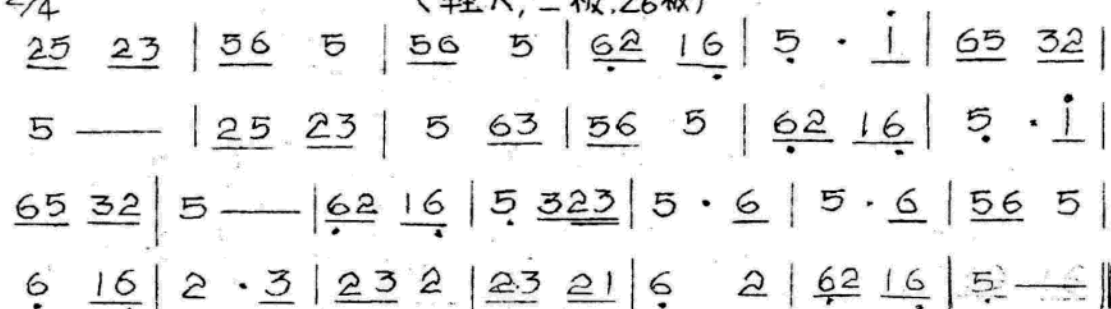 2/4
25 23 | 56 5 | 56 5 | 6̣2 16̣ | 5̣ · i̇ | 65 32 |
5 — | 25 23 | 5 63 | 56 5 | 6̣2 16̣ | 5̣ · i̇ |
65 32 | 5 — | 6̣2 16̣ | 5̣ 323 | 5 · 6 | 5 · 6 | 56 5 |
6̣ 16̣ | 2 · 3 | 23 2 | 23 21 | 6̣ 2 | 6̣2 16̣ | 5̣ — ‖